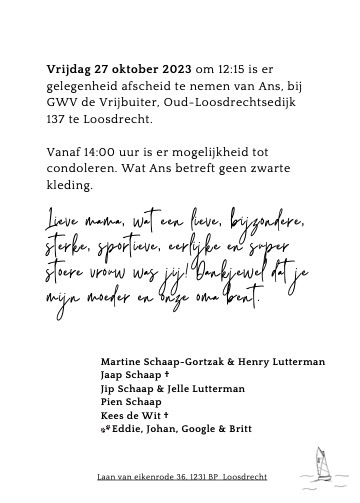 Vrijdag 27 oktober 2023 om 12:15 is er
gelegenheid afscheid te nemen van Ans, bij
GWV de Vrijbuiter, Oud-Loosdrechtsedijk
137 te Loosdrecht.
Vanaf 14:00 uur is er mogelijkheid tot
condoleren. Wat Ans betreft geen zwarte
kleding.
Lieve mama, wat een lieve, bijzondere,
sterke, sportieve, eerlijke en super
stoere vrouw was jij! Dankjewel dat je
mijn moeder en onze oma bent.
Martine Schaap-Gortzak & Henry Lutterman
Jaap Schaap †
Jip Schaap & Jelle Lutterman
Pien Schaap
Kees de Wit †
🐾Eddie, Johan, Google & Britt
Laan van eikenrode 36, 1231 BP Loosdrecht